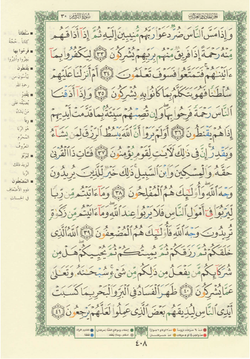 ٣٠
وَإِذَا مَسَّ ٱلنَّاسَ ضُرٌّ دَعَوۡاْ رَبَّهُم مُّنِيبِينَ إِلَيۡهِ ثُمَّ إِذَآ أَذَاقَهُم
مِّنۡهُ رَحۡمَةً إِذَا فَرِيقٌ مِّنۡهُم بِرَبِّهِمۡ يُشۡرِكُونَ ٣٣ لِيَكۡفُرُواْ بِمَآ
ءَاتَيۡنَٰهُمۡۚ فَتَمَتَّعُواْ فَسَوۡفَ تَعۡلَمُونَ ٣٤ أَمۡ أَنزَلۡنَا عَلَيۡهِمۡ
سُلۡطَٰنٗا فَهُوَ يَتَكَلَّمُ بِمَا كَانُواْ بِهِۦ يُشۡرِكُونَ ٣٥ وَإِذَآ أَذَقۡنَا ٱلنَّاسَ
رَحۡمَةٗ فَرِحُواْ بِهَاۖ وَإِن تُصِبۡهُمۡ سَيِّئَةُۢ بِمَا قَدَّمَتۡ أَيۡدِيهِمۡ
إِذَا هُمۡ يَقۡنَطُونَ ٣٦ أَوَلَمۡ يَرَوۡاْ أَنَّ ٱللَّهَ يَبۡسُطُ ٱلرِّزۡقَ لِمَن يَشَآءُ
وَيَقۡدِرُۚ إِنَّ فِي ذَٰلِكَ لَأٓيَٰتٖ لِّقَوۡمٖ يُؤۡمِنُونَ ٣٧ فَـَٔاتِ ذَا ٱلۡقُرۡبَىٰ
حَقَّهُۥ وَٱلۡمِسۡكِينَ وَٱبۡنَ ٱلسَّبِيلِۚ ذَٰلِكَ خَيۡرٞ لِّلَّذِينَ يُرِيدُونَ
وَجۡهَ ٱللَّهِۖ وَأُوْلَٰٓئِكَ هُمُ ٱلۡمُفۡلِحُونَ ٣٨ وَمَآ ءَاتَيۡتُم مِّن رِّبٗا
لِّيَرۡبُوَاْ فِيٓ أَمۡوَٰلِ ٱلنَّاسِ فَلَا يَرۡبُواْ عِندَ ٱللَّهِۖ وَمَآ ءَاتَيۡتُم مِّن زَكَوٰةٖ
تُرِيدُونَ وَجۡهَ ٱللَّهِ فَأُوْلَٰٓئِكَ هُمُ ٱلۡمُضۡعِفُونَ ٣٩ ٱللَّهُ ٱلَّذِي
خَلَقَكُمۡ ثُمَّ رَزَقَكُمۡ ثُمَّ يُمِيتُكُمۡ ثُمَّ يُحۡيِيكُمۡۖ هَلۡ مِن
شُرَكَآئِكُم مَّن يَفۡعَلُ مِن ذَٰلِكُم مِّن شَيۡءٖۚ سُبۡحَٰنَهُۥ وَتَعَٰلَىٰ
عَمَّا يُشۡرِكُونَ ٤٠ ظَهَرَ ٱلۡفَسَادُ فِي ٱلۡبَرِّ وَٱلۡبَحۡرِ بِمَا كَسَبَتۡ
أَيۡدِي ٱلنَّاسِ لِيُذِيقَهُم بَعۡضَ ٱلَّذِي عَمِلُواْ لَعَلَّهُمۡ يَرۡجِعُونَ ٤١
٤٠٨